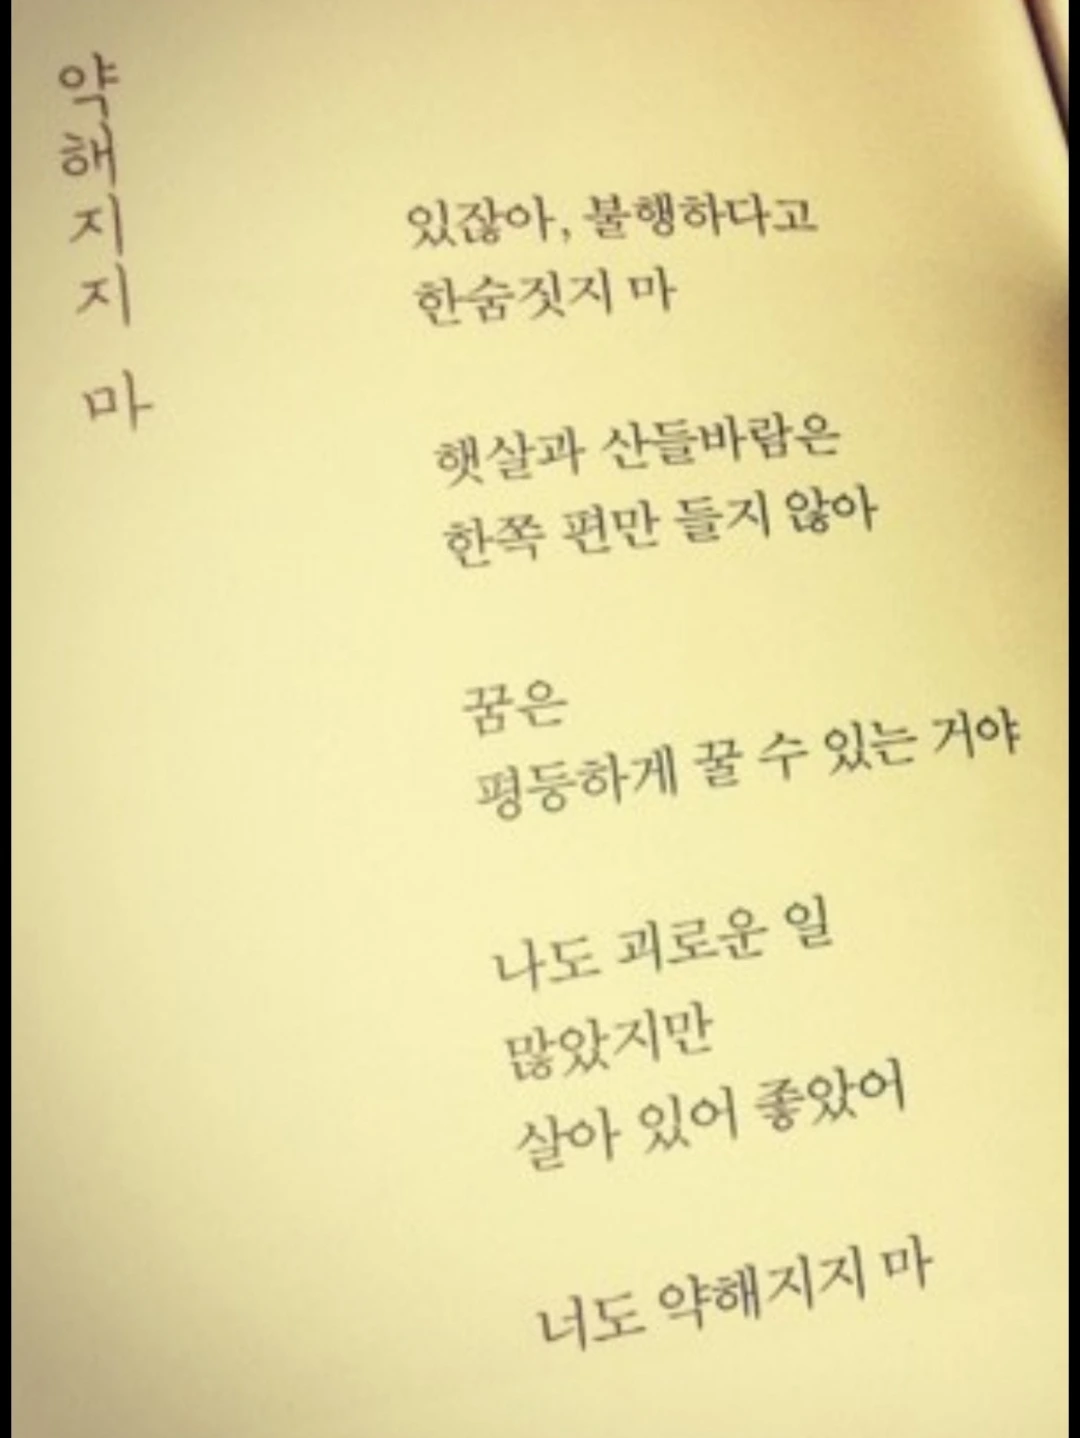 약해지지 마
있잖아, 불행하다고
한숨짓지 마
햇살과 산들바람은
한쪽 편만 들지 않아
꿈은
평등하게 꿀 수 있는 거야
나도 괴로운 일
많았지만
살아 있어 좋았어
너도 약해지지 마